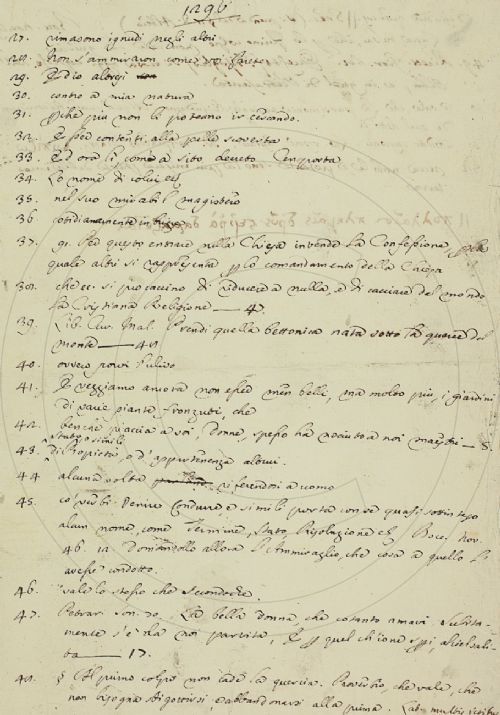 1296
27. rimasono ignudi negli altri
28. Non s'ammiravon, come voi fareto
29. Ed io altresi
30. contro a mia natura
31. perchè piu non li poteano ir cercando.
32. E per contenti alla pelle scoverta
33. Ed ora lì, come a sito decreto Cen porta
34. Lo nome di colui ec
35. nel suo mirabil magistero
36
37. 91. Per questo entrare nella Chiesa intendo la Confessione, per la
quale altri si rappresenta per lo comandamento della Chiesa
38. che ec: si procaccino di riducere a nulla, e di cacciare del mondo
la Cristiana Religione — 4.
39. Lib. Cur. Mal. Prendi quella bettonica nata sotto la querce del
monte — 4
40. ovvero povri l'ulivo
41. E veggiamo ancora non esser men belli, ma molto piu, i giardini
di varie piante fronzuti, che
42. benchè piaccia a voi, Donne, spesso ha nociuto a noi maestri — S.
Stato o simili
43. di Proprietà, o d'appartenenza altrui.
44 alcuna volta riferendosi a come
45. co' verbi. Venire Condure, e simili porta con se quasi sottinteso
alcun nome, come Termine, Stato, Risoluzione ec. Bocc. Nov.
46. 12. Domandollo allora l'Ammiraglio, che cosa a quello lo
avesse condotto.
46. vale lo stesso che Secondochè.
47. Petrar. Son. 70. La bella Donna, che cotanto amavi Subita-
mente s'è da noi partita, E per quel ch'io ne speri, al ciel sali-
ta — 17.
48. § Al primo colpo non cade la quercia. Proverbio, che vale, che
non bisogna sbigottirsi e abbandonarsi alla prima. Lab. multis ictibus